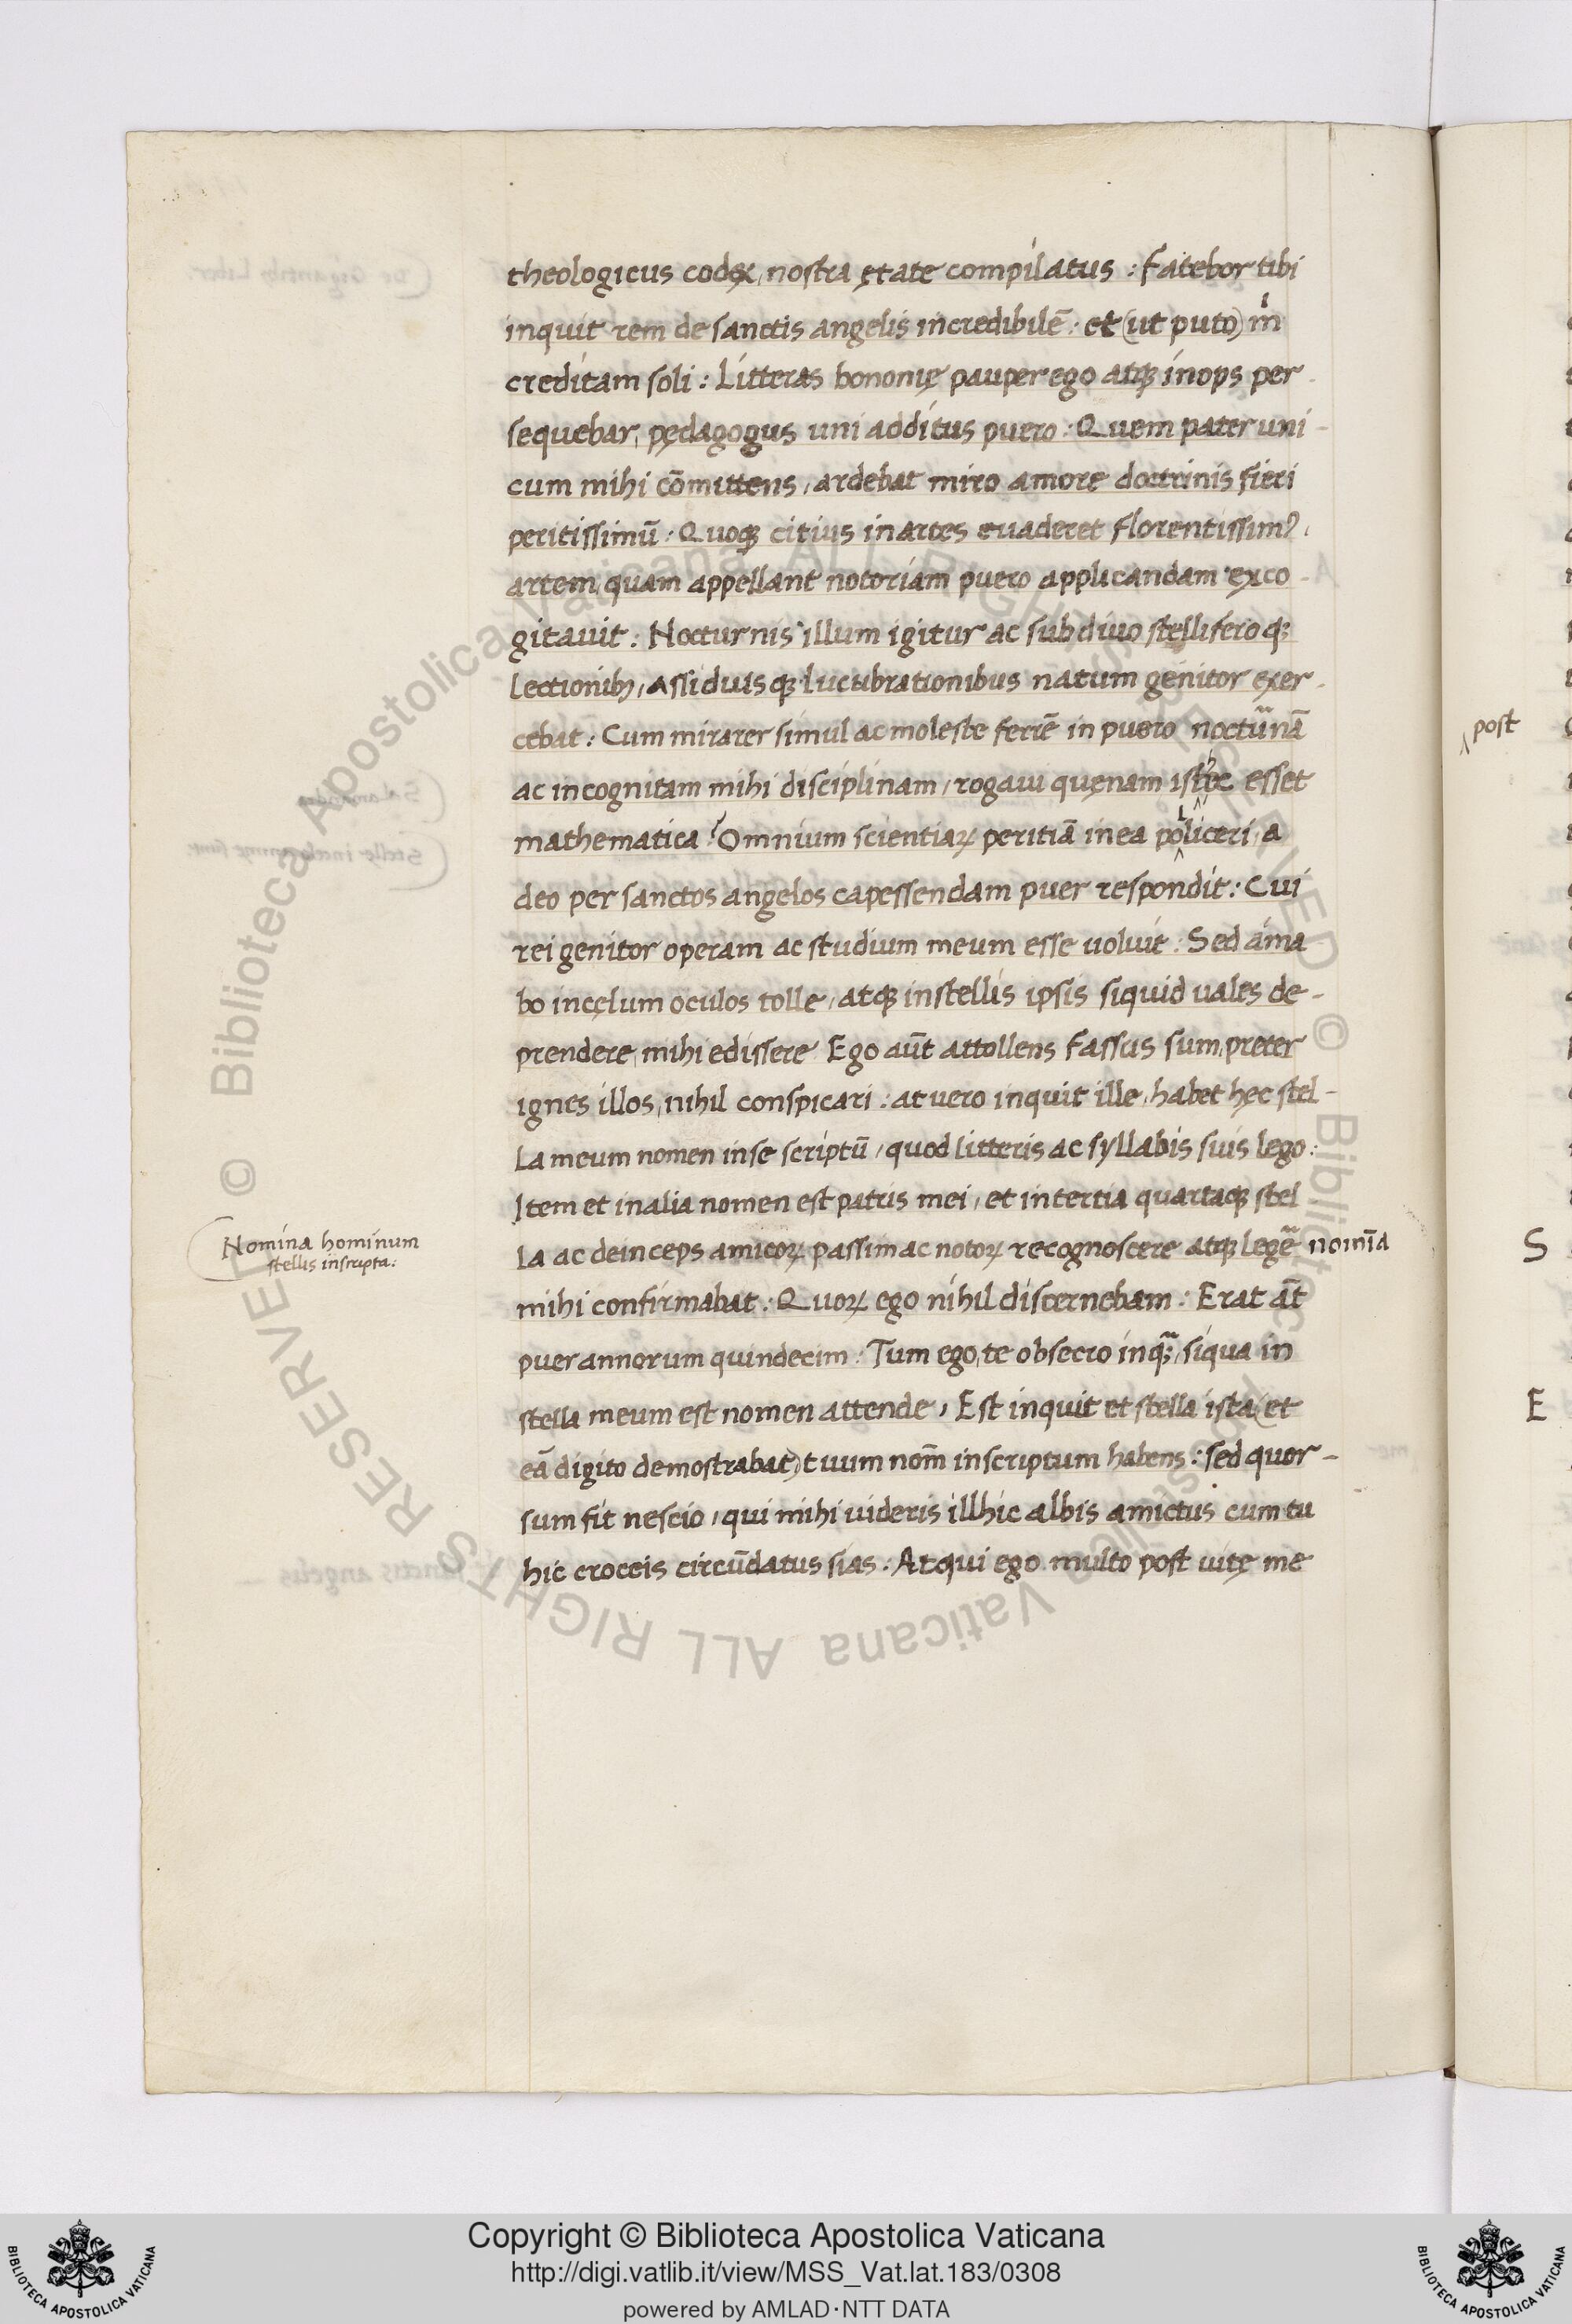 theologicus codęx, nostra ętate compilatus : Fatebor tibi
inquit rem de sanctis angelis incredibilē : et (ut puto) m̍
creditam soli : Litteras bononię pauper ego atq; inops per
sequebar, pędagogus uni additus puero : Quem pater uni-
cum mihi cōmittens, ardebat miro amore doctrinis fieri
peritissimū : Quoq; citius in artes euaderet florentissimꝰ,
artem, quam appellant notoriam puero applicandam exco-
gitauit : Nocturnis illum igitur ac sub diuo stellifero q;
Lectionib;, assiduis q; lucubrationibus natum genitor exer-
cebat : Cum mirarer simul ac moleste ferrē in puero noctūnā
ac incognitam mihi disciplinam, rogaui quęnam esset
mathematica? Omnium scientiaꝝ peritiā in ea polliceri, a
deo per sanctos angelos capessendam puer respondit : Cui
rei genitor operam ac studium meum esse uoluit : Sed ama
bo in cęlum oculos tolle, atq; in stellis ipsis siquid uales de-
prendere, mihi edissere Ego aūt attollens Fassus sum, preter
ignes illos, nihil conspicari : at uero inquit ille, habet hęc stel-
La meum nomen in se scriptū, quod litteris ac syllabis suis lego :
Item et in alia nomen est patris mei, et in tertia quartaq; stel
La ac deinceps amicoꝝ passim ac notoꝝ recognoscere atq; legē nomīa
mihi confirmabat : Quoꝝ ego nihil discernebam : Erat āt
puer annorum quindecim : Tum ego, te obsecro inq̄;, siqua in
stella meum est nomen attende, Est inquit et stella ista (et
eā digito demostrabat) tuum nom̄ inscriptum habens : sed quor-
sum fit nescio, qui mihi uideris illhic albis amictus cum tu
hic croceis circūdatus sias : Atqui ego multo post uitę me
Nomina hominum
stellis inscripta :
post
S
E
© Biblioteca Apostolica Vaticana ALL RIGHTS RESERVED © Biblioteca Apostolica Vaticana ALL RIGHTS RESERVED
Copyright © Biblioteca Apostolica Vaticana
http://digi.vatlib.it/view/MSS_Vat.lat.183/0308
powered by AMLAD·NTT DATA
BIBLIOTECA APOSTOLICA VATICANA
BIBLIOTECA APOSTOLICA VATICANA